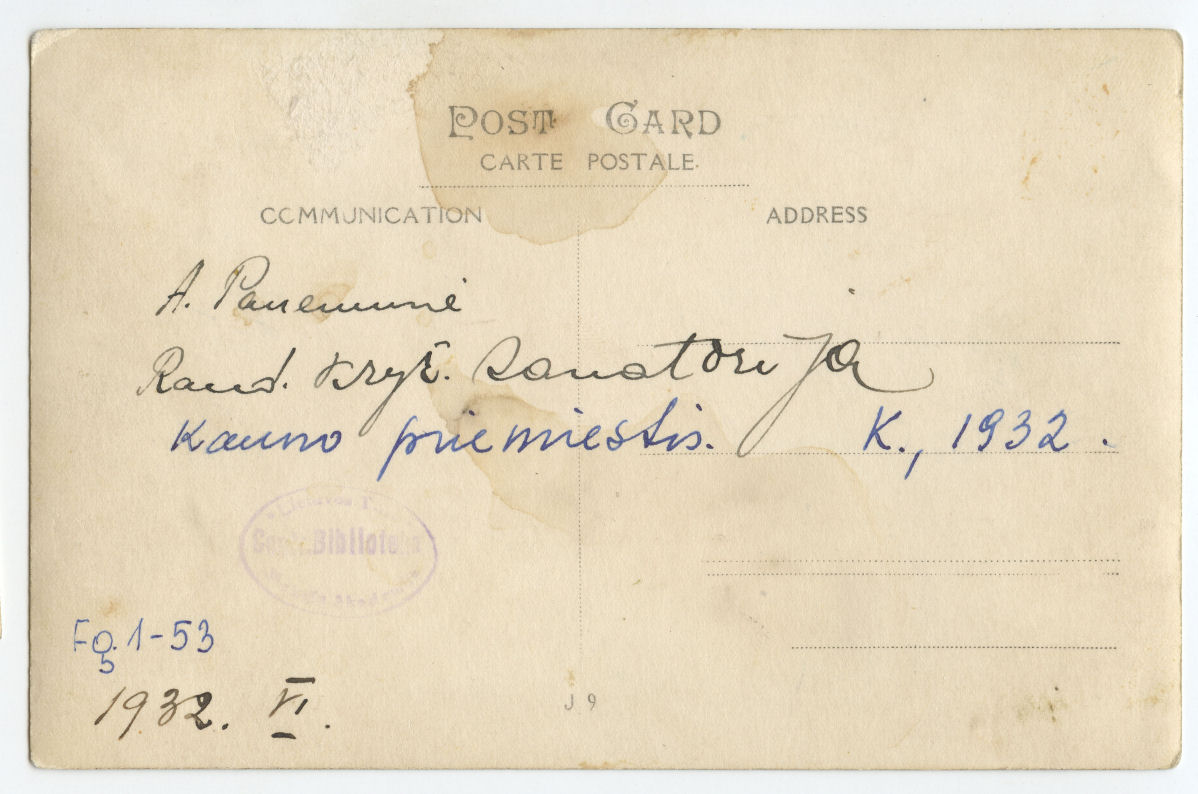 POST CARD
CARTE POSTALE.
COMMUNICATION
ADDRESS
A. Panemunė
Raud. Kryž. Sanatorija
Kauno priemiestis. K., 1932.
Biblioteka
Fg. 1-53
1932. VI.
J 9